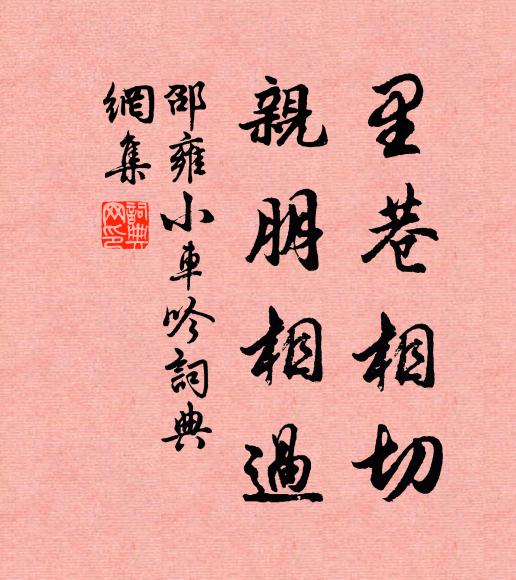 里巷相切
親朋相過
邵雍小車吟詞典
網集
詞典
网印